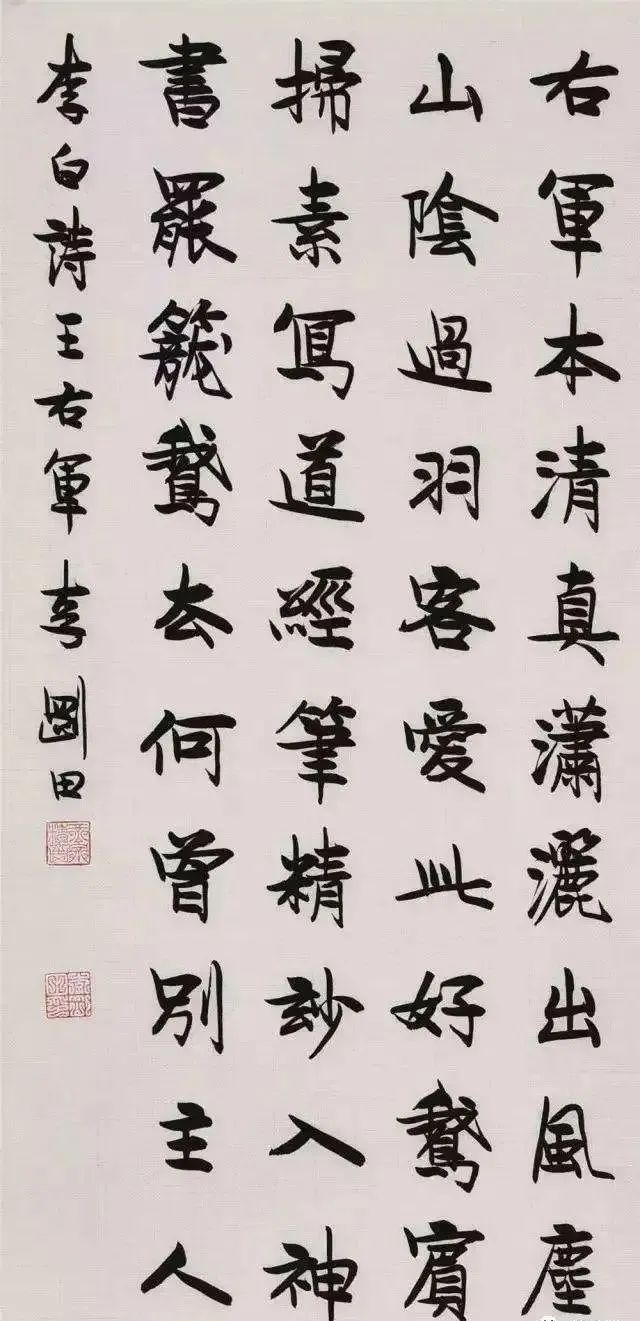 右軍本清真瀟灑出風塵
山隂過羽客愛此好鵞賓
掃素冩道經筆精玅入神
書罷籠鵞厺何曾別主人
李白詩王右軍李剛田